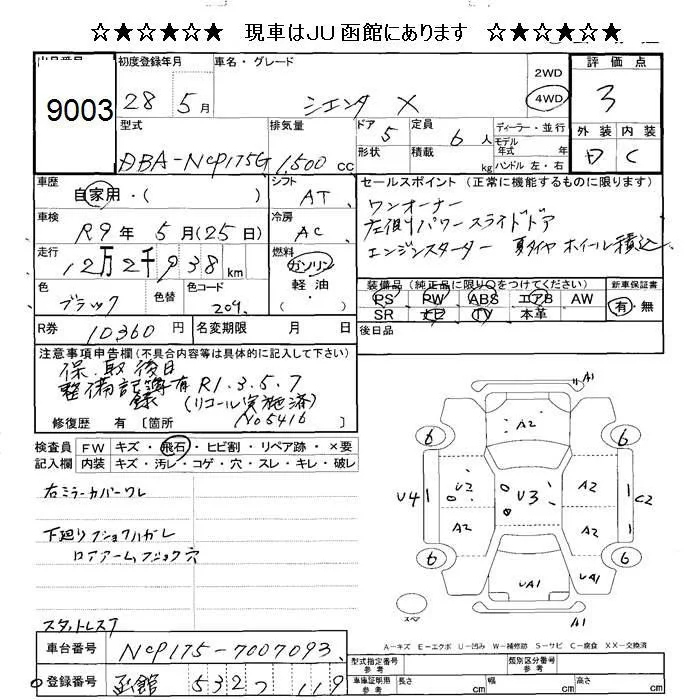 ☆★☆★☆★ 現車はJU函館にあります ☆★☆★☆★
9003
初度登録年月 28年 5月
車名・グレード シエンタ X
2WD
4WD
評価点 3
外装 内装
D C
型式 DBA-NCP175G
排気量 1,500 cc
ドア 5
形状
定員 6人
積載 kg
ディーラー・並行
モデル年式 年
ハンドル 左・右
車歴 自家用・( )
シフト AT
車検 R9年5月(25日)
冷房 AC
走行 12万2千938km
燃料 ガソリン 軽油・
色 ブラック
色替
色コード 209
R券 10360円
名変期限 月 日
セールスポイント(正常に機能するものに限ります)
ワンオーナー
左側パワースライドドア
エンジンスターター 夏タイヤホイール積込
装備品(純正品に限り○をつけてください)
PS PW ABS エアB AW
SR ナビ TV 本革
新車保証書
有・無
後日品
注意事項申告欄(不具合内容等は具体的に記入して下さい)
保、取後日
整備記録簿有 R1.3.5.7
(リコール実施済)
No5416
修復歴 有 〔箇所
検査員記入欄
FW キズ・飛石・ヒビ割・リペア跡・×要
内装 キズ・汚レ・コゲ・穴・スレ・キレ・破レ
右ミラーカバーワレ
下廻リ
ロアアーム ブーツ穴
スタットレス7
車台番号 NCP175-7007093
登録番号 函館 532つ 119
A1
A2
6 6
U4 1 U2 A2 U3 A2 A2 1 C2
6 6
UA1 U41
A1
スペア
A-キズ E-エクボ U-凹み W-補修跡 S-サビ C-腐食 XX-交換済
型式指定番号
類別区分番号
車庫証明用参考 長さ cm 幅 cm 高さ cm